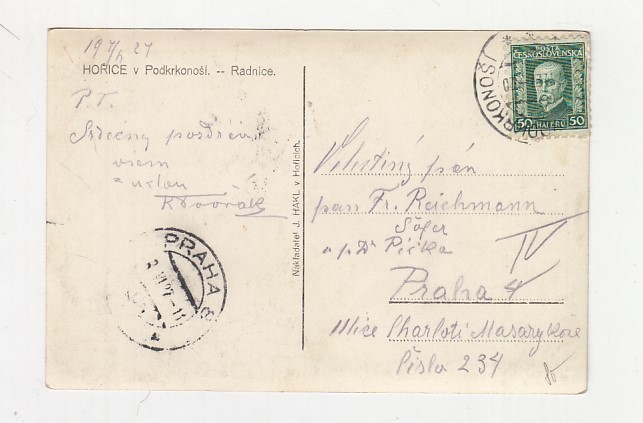 19 7/6 27
HOŘICE v Podkrkonoší. -- Radnice.
P.T.
Srdečný pozdrav
všem
K Dvořák
PRAHA 8
Nakladatel J. HAKL v Hořicích.
POŠTA
ČESKOSLOVENSKÁ
50 HALÉŘŮ 50
RKONOŠ
Velectěný pán
pan Fr. Reichmann
Šofer
u p. Dr Pička
IV
Praha 4
Ulice Charloti Masarykové
číslo 234